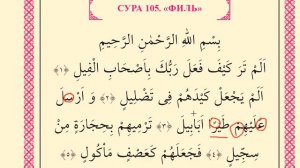 СУРА 105. «ФИЛЬ»
بِسْمِ اللهِ الرَّحْمٰنِ الرَّحِيمِ
اَلَمْ تَرَ كَيْفَ فَعَلَ رَبُّكَ بِاَصْحَابِ الْفِيلِ ﴿١﴾
اَلَمْ يَجْعَلْ كَيْدَهُمْ فِى تَضْلِيلٍ ﴿٢﴾ وَ اَرْسَلَ
عَلَيْهِمْ طَيْرًا اَبَابِيلَ ﴿٣﴾ تَرْمِيهِمْ بِحِجَارَةٍ مِنْ
سِجِّيلٍ ﴿٤﴾ فَجَعَلَهُمْ كَعَصْفٍ مَأْكُولٍ ﴿٥﴾